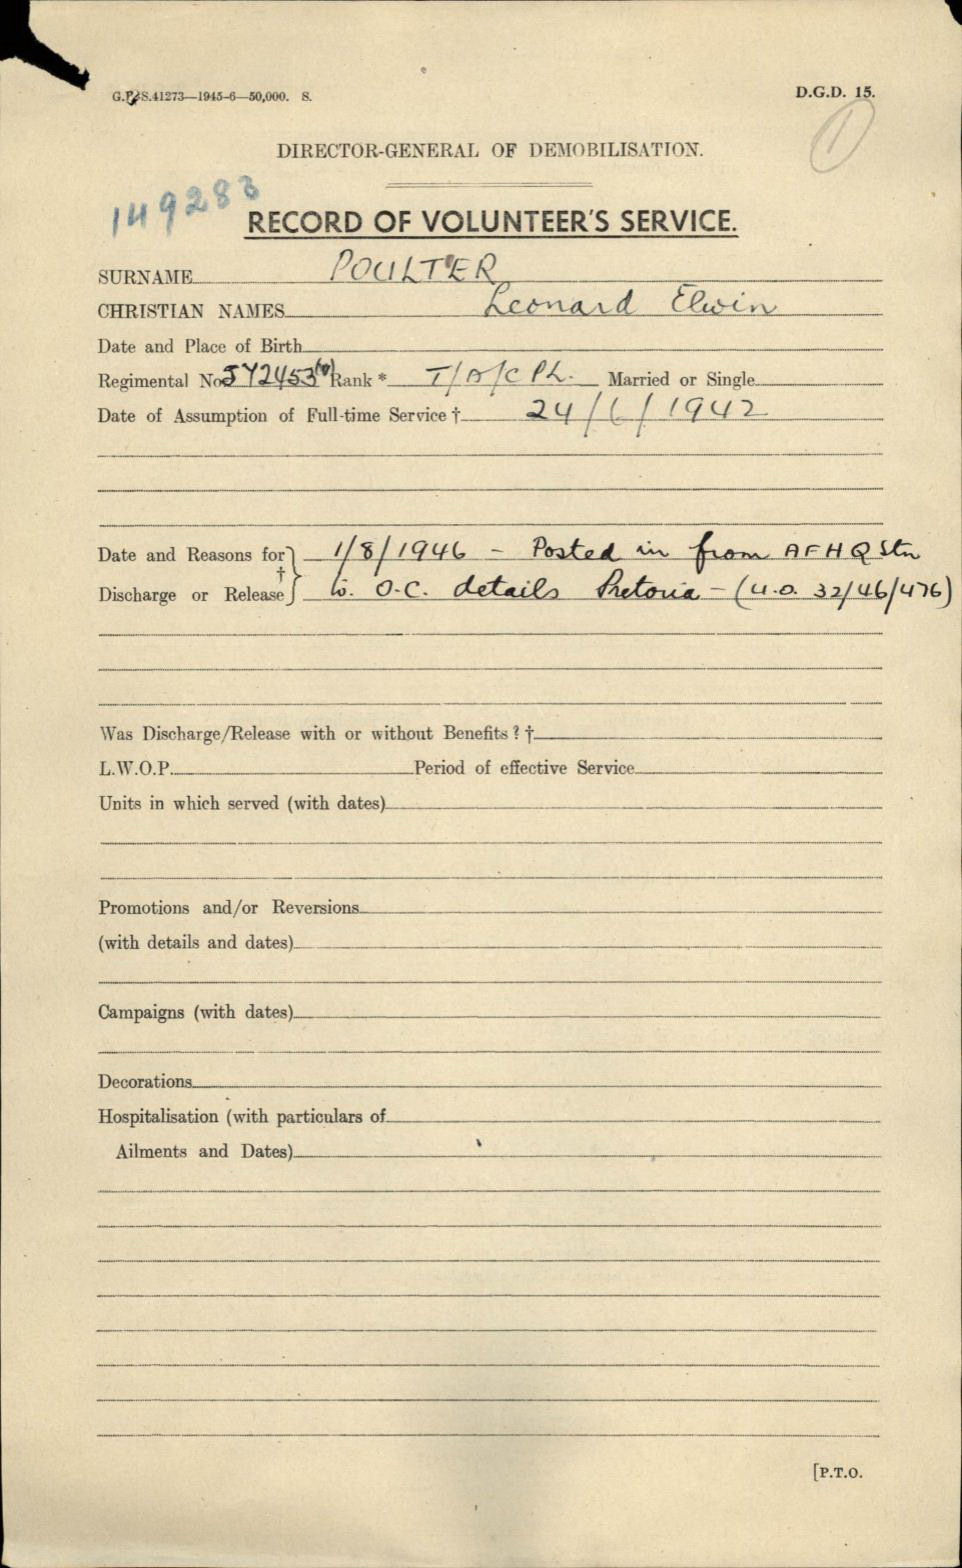 G.P.S.41273—1945-6—50,000. S.
D.G.D. 15.
1
DIRECTOR-GENERAL OF DEMOBILISATION.
149283
RECORD OF VOLUNTEER'S SERVICE.
SURNAME POULTER
CHRISTIAN NAMES Leonard Elwin
Date and Place of Birth
Regimental No 572453 (V) Rank * T/A/CPL. Married or Single
Date of Assumption of Full-time Service † 24/6/1942
Date and Reasons for } 1/8/1946 - Posted in from AFHQ Stn
†
Discharge or Release } to O.C. details Pretoria - (U.O. 32/46/476)
Was Discharge/Release with or without Benefits ? †
L.W.O.P. Period of effective Service
Units in which served (with dates)
Promotions and/or Reversions
(with details and dates)
Campaigns (with dates)
Decorations
Hospitalisation (with particulars of
Ailments and Dates)
[P.T.O.